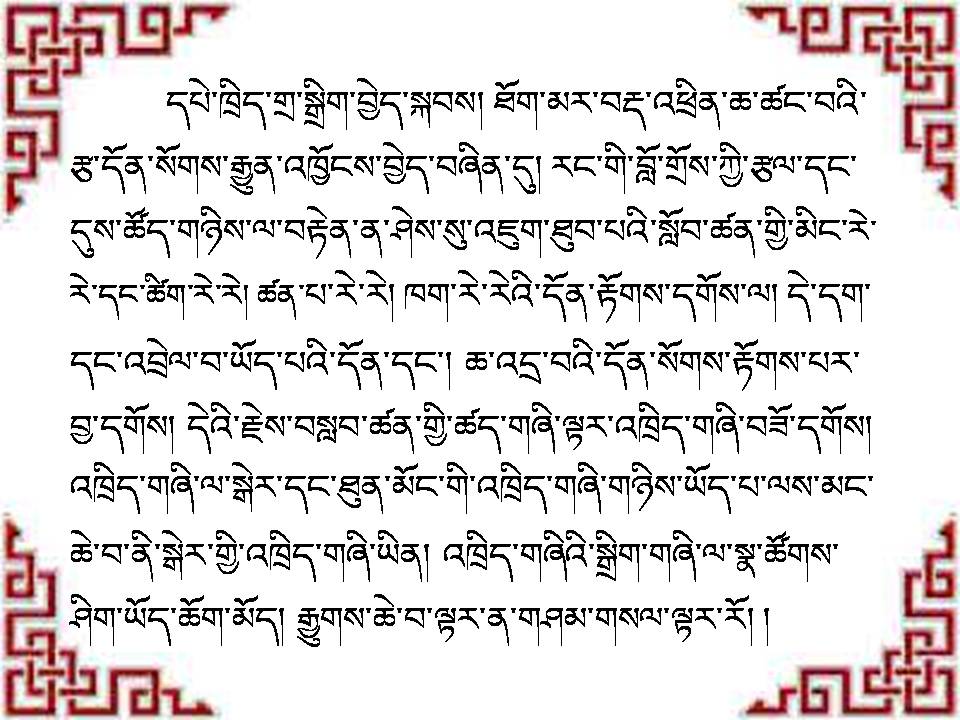 དཔེ་ཁྲིད་གྲ་སྒྲིག་བྱེད་སྐབས། ཐོག་མར་བརྡ་འཕྲིན་ཆ་ཚང་བའི་
རྩ་དོན་སོགས་རྒྱུན་འཁྱོངས་བྱེད་བཞིན་དུ། རང་གི་བློ་གྲོས་ཀྱི་རྩལ་དང་
དུས་ཚོད་གཉིས་ལ་བརྟེན་ན་ཤེས་སུ་འཇུག་ཐུབ་པའི་སློབ་ཚན་གྱི་མིང་རེ་
རེ་དང་ཚིག་རེ་རེ། ཚན་པ་རེ་རེ། ཁག་རེ་རེའི་དོན་རྟོགས་དགོས་ལ། དེ་དག་
དང་འབྲེལ་བ་ཡོད་པའི་དོན་དང་། ཆ་འདྲ་བའི་དོན་སོགས་རྟོགས་པར་
བྱ་དགོས། དེའི་རྗེས་བསླབ་ཚན་གྱི་ཚད་གཞི་ལྟར་འཁྲིད་གཞི་བཟོ་དགོས།
འཁྲིད་གཞི་ལ་སྒེར་དང་ཐུན་མོང་གི་འཁྲིད་གཞི་གཉིས་ཡོད་པ་ལས་མང་
ཆེ་བ་ནི་སྒེར་གྱི་འཁྲིད་གཞི་ཡིན། འཁྲིད་གཞིའི་སྒྲིག་གཞི་ལ་སྣ་ཚོགས་
ཤིག་ཡོད་ཆོག་མོད། རྒྱུགས་ཆེ་བ་ལྟར་ན་གཤམ་གསལ་ལྟར་རོ། །